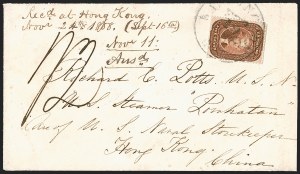 Recd at Hong Kong.
Novr 24th 1858. (Sept 16th)
Novr 11.
Ansd
Richard C. Potts U. S. N.
U. S. Steamer "Powhatan"
Care of U. S. Naval Storekeeper
Hong Kong.
China